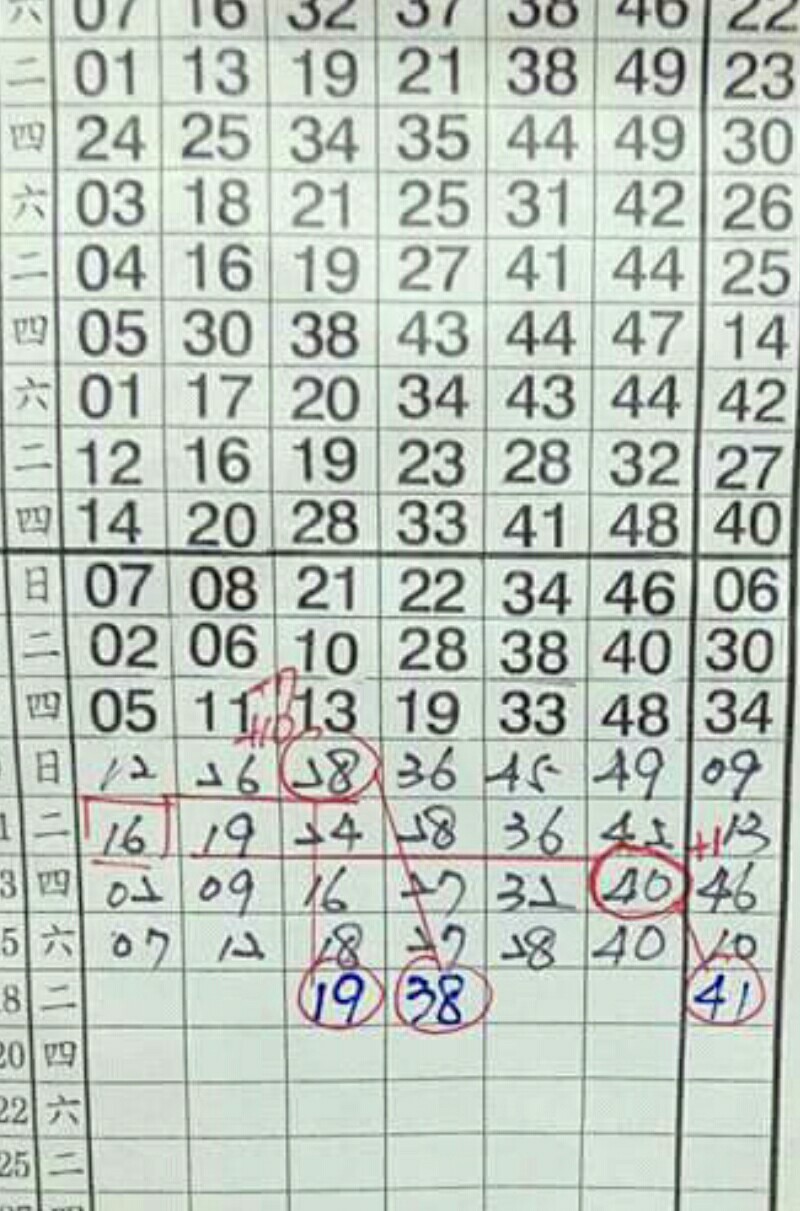 六 07 16 32 37 38 46 22
二 01 13 19 21 38 49 23
四 24 25 34 35 44 49 30
六 03 18 21 25 31 42 26
二 04 16 19 27 41 44 25
四 05 30 38 43 44 47 14
六 01 17 20 34 43 44 42
二 12 16 19 23 28 32 27
四 14 20 28 33 41 48 40
日 07 08 21 22 34 46 06
二 02 06 10 28 38 40 30
四 05 11 13 19 33 48 34
+10
日 12 26 28 36 45 49 09
1 二 16 19 24 28 36 42 +1 13
3 四 02 09 16 27 32 40 46
5 六 07 12 18 27 28 40 10
8 二 19 38 41
20 四
22 六
25 二